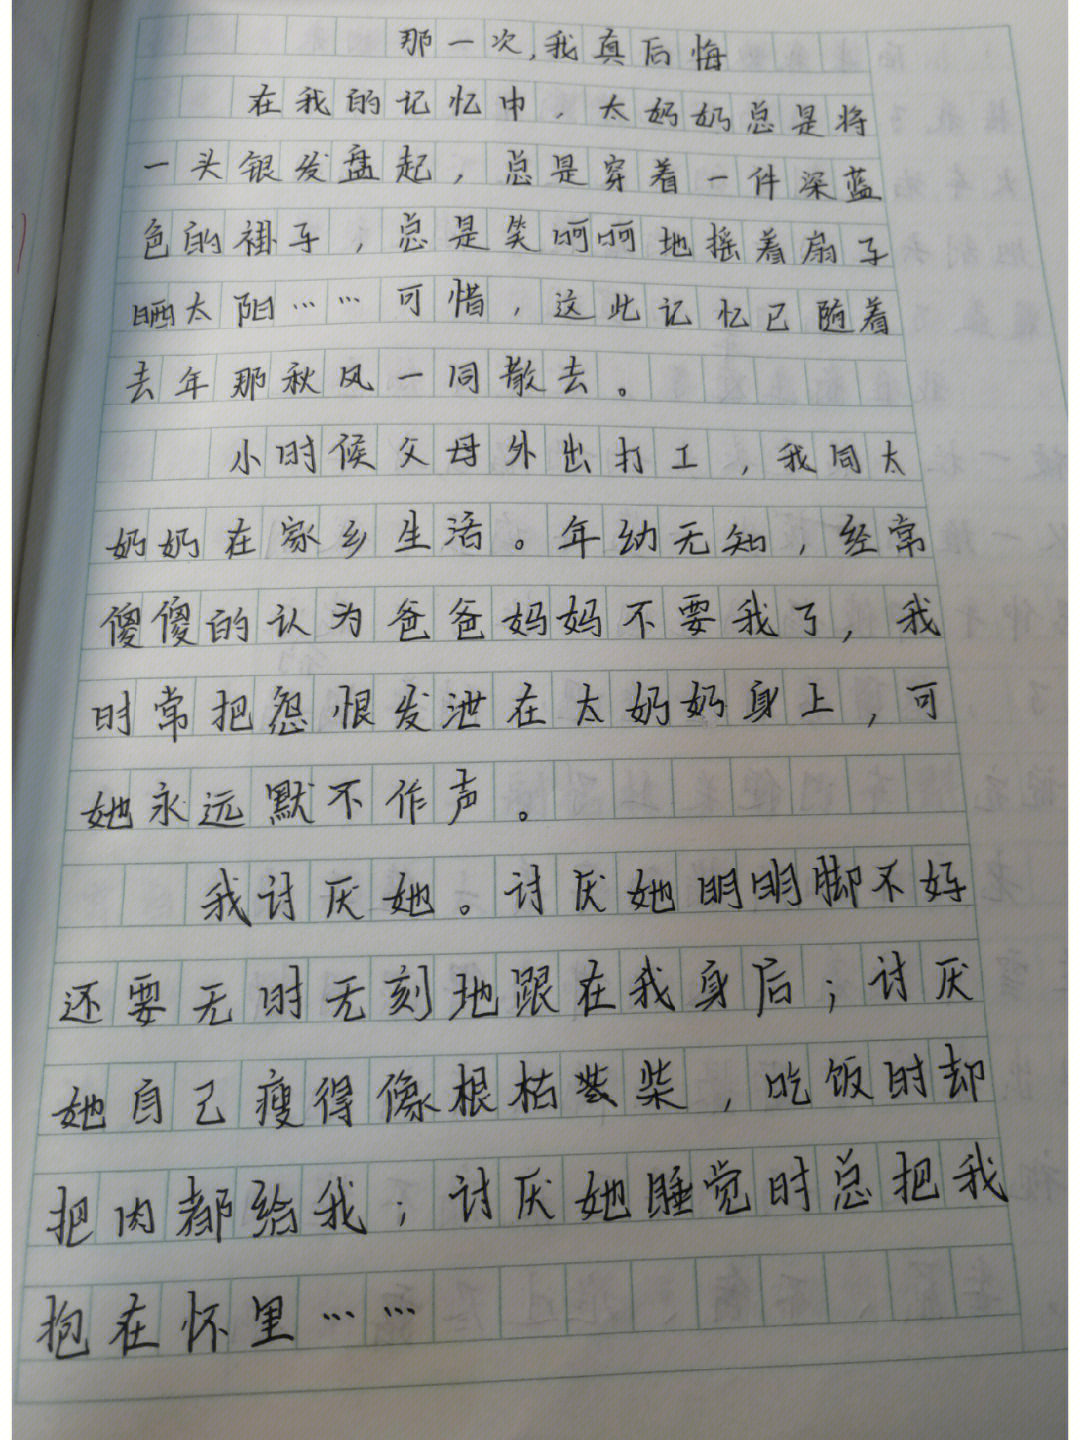 那一次,我真后悔
在我的记忆中，太奶奶总是将
一头银发盘起，总是穿着一件深蓝
色的褂子，总是笑呵呵地摇着扇子
晒太阳……可惜，这些记忆已随着
去年那秋风一同散去。
小时候父母外出打工，我同太
奶奶在家乡生活。年幼无知，经常
傻傻的认为爸爸妈妈不要我了，我
时常把怨恨发泄在太奶奶身上，可
她永远默不作声。
我讨厌她。讨厌她明明脚不好
还要无时无刻地跟在我身后；讨厌
她自己瘦得像根枯柴，吃饭时却
把肉都给我；讨厌她睡觉时总把我
抱在怀里……